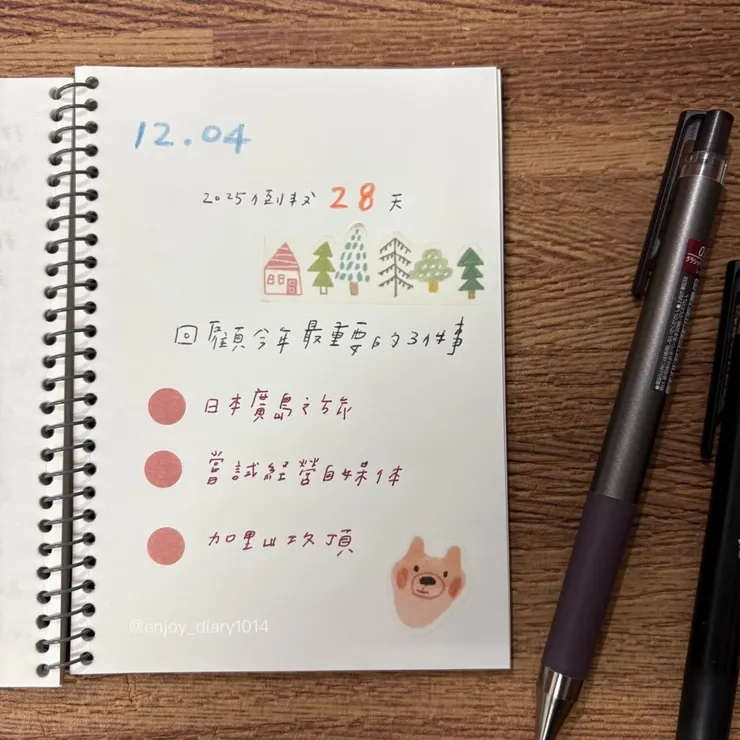 12.04
2025倒数 28 天
回顧今年最重要的3件事
日本廣島之旅
嘗試經營自媒体
加里山攻頂
@enjoy_diary1014